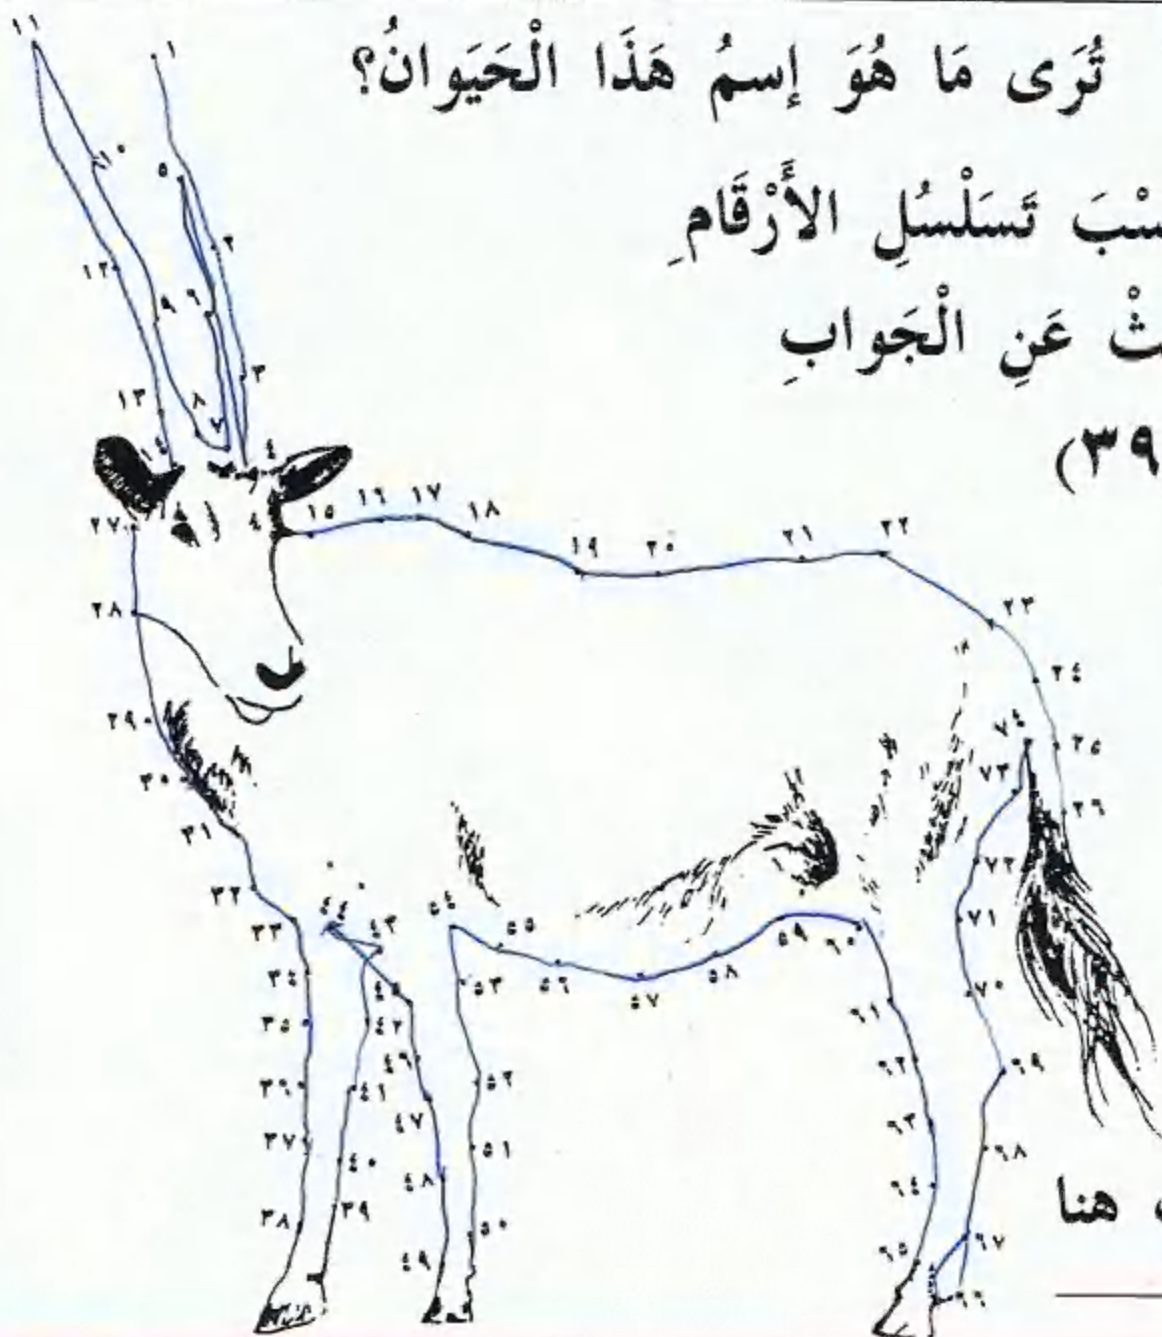 تُرَى مَا هُوَ إسمُ هَذَا الْحَيَوانُ؟
سْبَ تَسَلْسُلِ الأَرْقَامِ
ثْ عَنِ الْجَوابِ
٣٩)
١
٢
٣
٤
٥
٦
٧
٨
٩
١٠
١١
١٢
١٣
١٤
١٥
١٦
١٧
١٨
١٩
٢٠
٢١
٢٢
٢٣
٢٤
٢٥
٢٦
٢٧
٢٨
٢٩
٣٠
٣١
٣٢
٣٣
٣٤
٣٥
٣٦
٣٧
٣٨
٣٩
٤٠
٤١
٤٢
٤٣
٤٤
٤٥
٤٦
٤٧
٤٨
٤٩
٥٠
٥١
٥٢
٥٣
٥٤
٥٥
٥٦
٥٧
٥٨
٥٩
٦٠
٦١
٦٢
٦٣
٦٤
٦٥
٦٦
٦٧
٦٨
٦٩
٧٠
٧١
٧٢
٧٣
٧٤
هنا